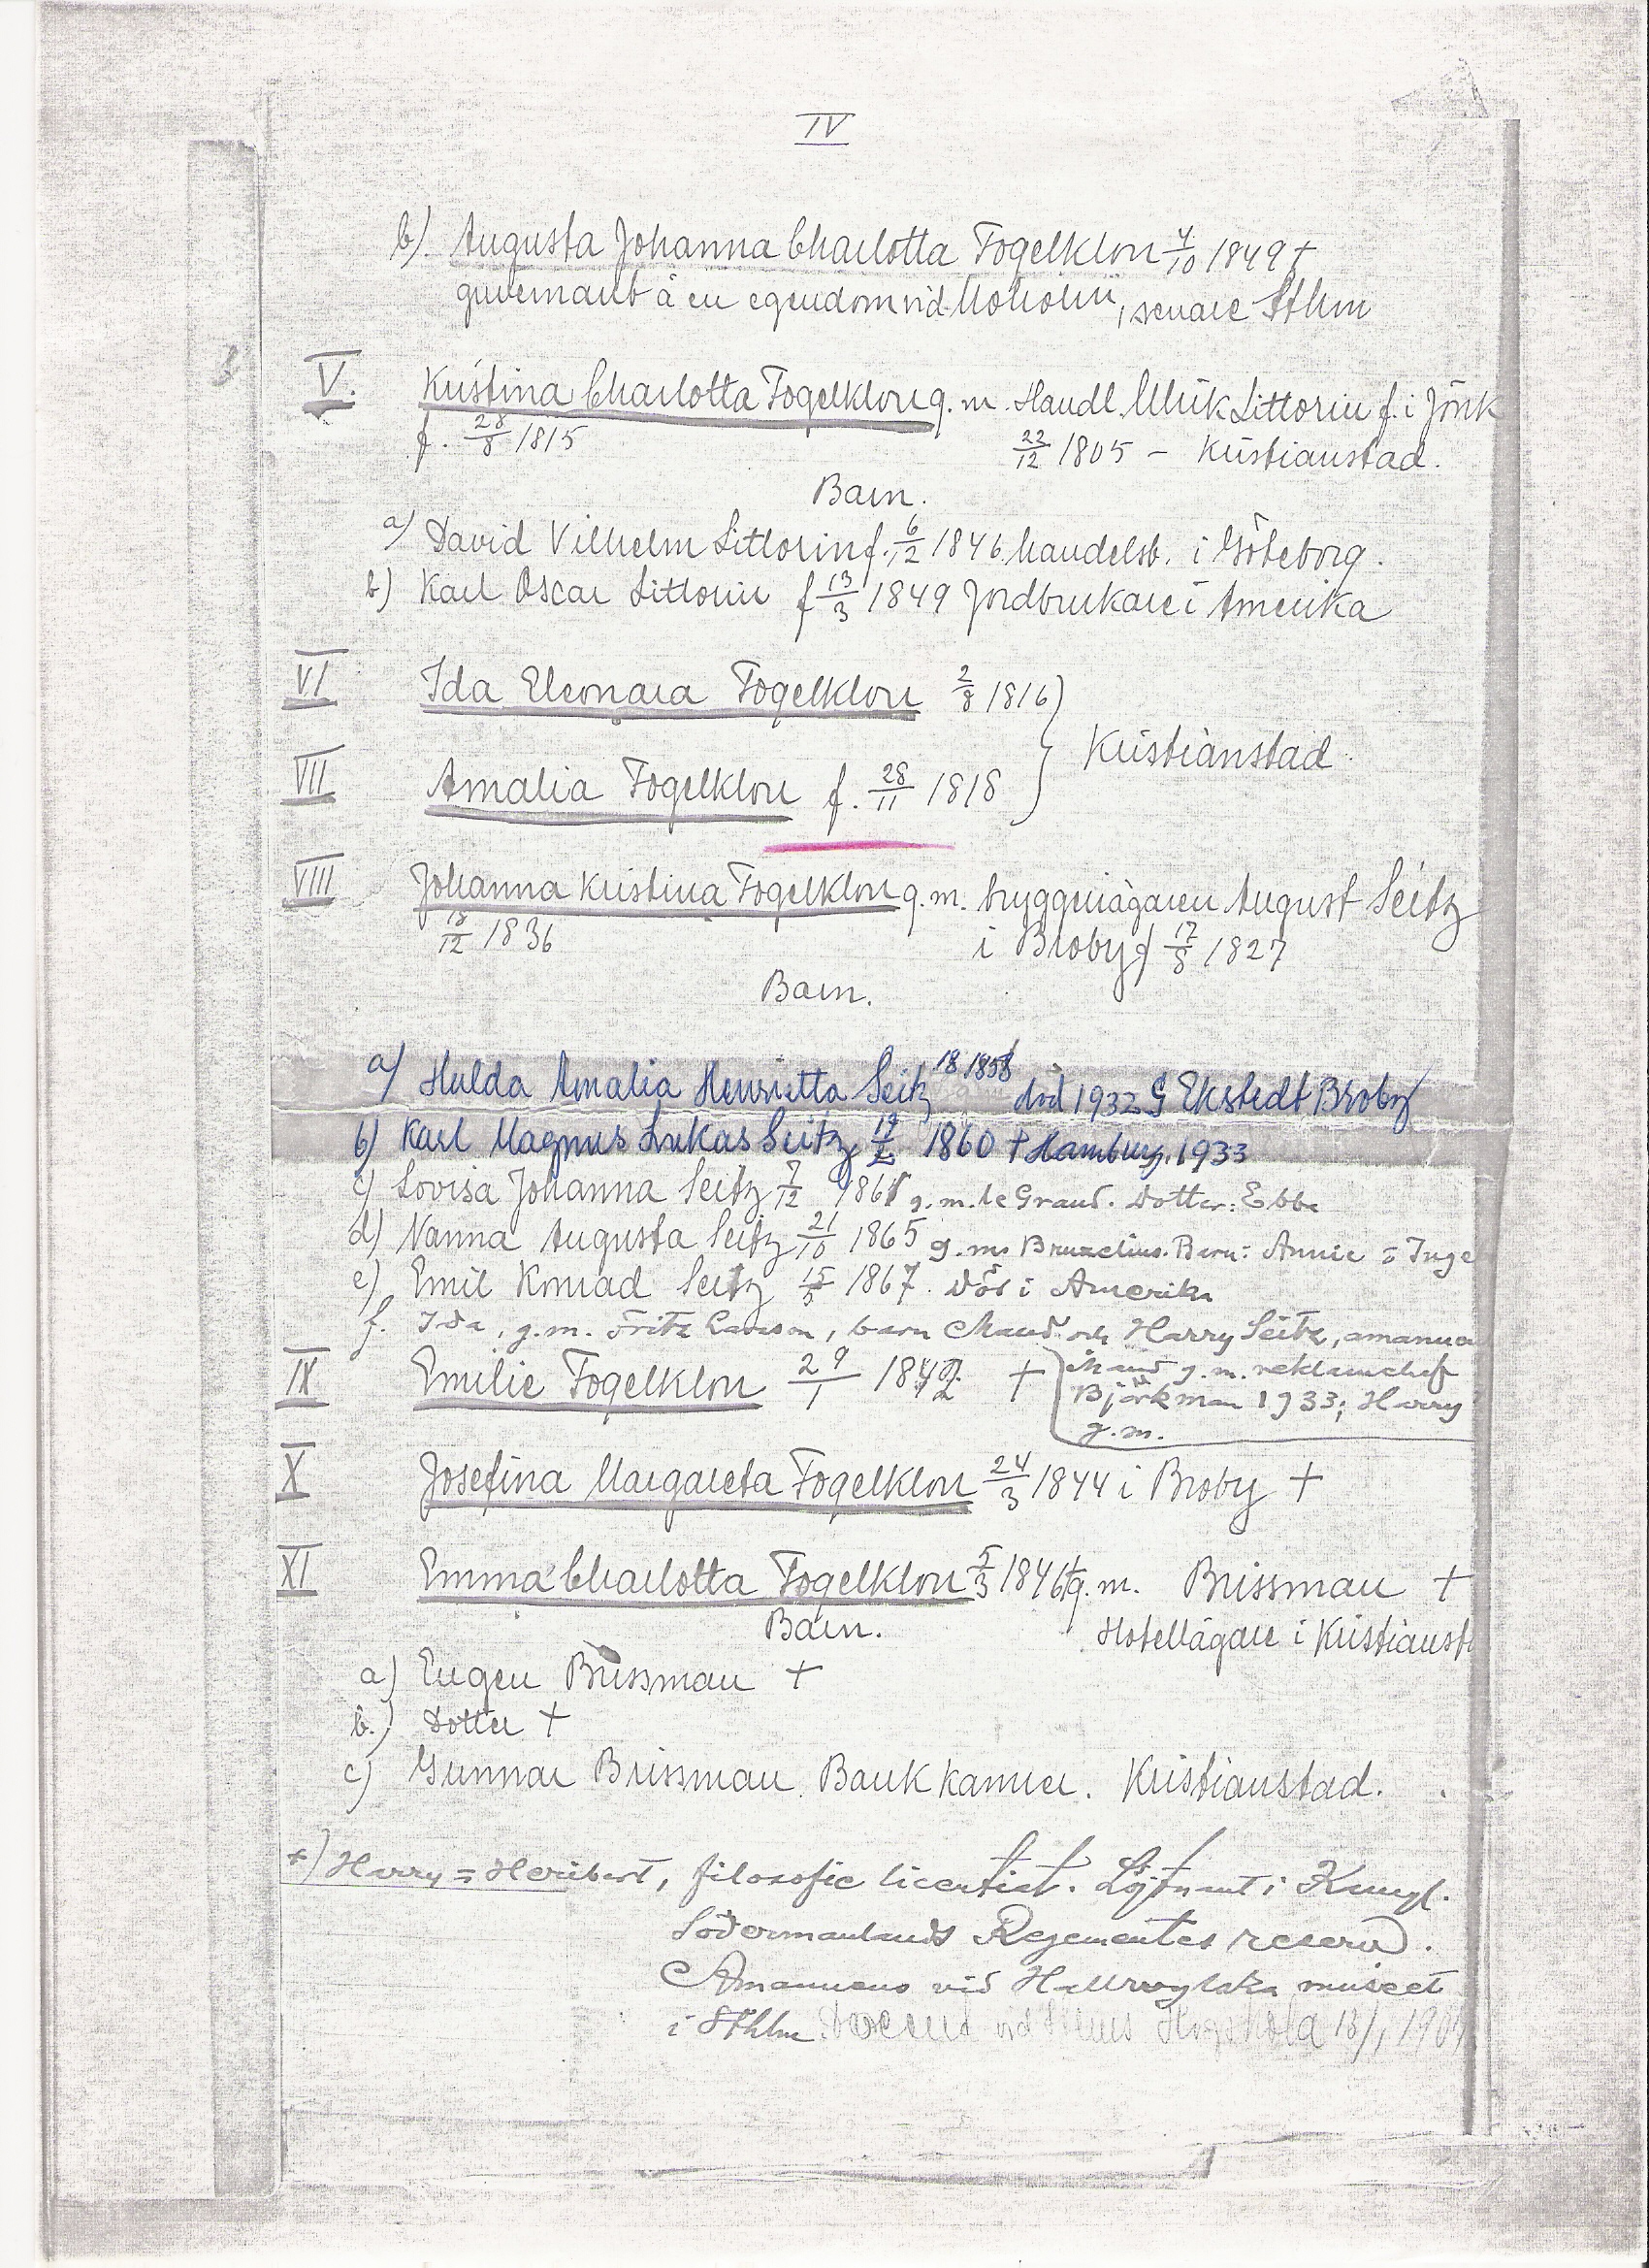 IV
b). Augusta Johanna Charlotta Fogelklou 4/10 1849 †
guvernant å en egendom vid Moholm, senare Sthlm
V. Kristina Charlotta Fogelklou g. m. Handl. Ulrik Littorin f. i Jönk
f. 28/8 1815 22/12 1805 – Kristianstad.
Barn.
a) David Vilhelm Littorin f. 6/12 1846 handelsb. i Göteborg.
b) Karl Oscar Littorin f 13/3 1849 Jordbrukare i Amerika
VI Ida Eleonara Fogelklou 2/8 1816
Kristianstad
VII Amalia Fogelklou f. 28/11 1818
VIII Johanna Kristina Fogelklou g. m. bryggeriägaren August Seitz
18/12 1836 i Broby f 17/8 1827
Barn.
a) Hulda Amalia Henrietta Seitz 18 1858 död 1932 G Ekstedt Broby
b) Karl Magnus Lukas Seitz 19/2 1860 † Hamburg. 1933
c) Lovisa Johanna Seitz 7/12 1861 g. m. le Grand. Dotter: Ebba
d) Nanna Augusta Seitz 21/10 1865 g. m. Bruzelius. Barn: Annie = Inge
e) Emil Konrad Seitz 15/5 1867. Död i Amerika
f. Ida, g.m. Fritz Larsson, barn Maud och Harry Seitz, amanue
IX Emilie Fogelklou 29/1 1842 † Maud g. m. reklamchef
Björkman 1933; Harry
g. m.
X Josefina Margareta Fogelklou 24/3 1844 i Broby †
XI Emma Charlotta Fogelklou 5/3 1846 † g. m. Brissman †
Barn. Hotellägare i Kristianst
a) Eugen Brissman †
b.) Dotter †
c) Gunnar Brissman. Bankkamrer. Kristianstad.
+) Harry = Heribert, filosofie licentiat. Löjtnant i Kungl.
Södermanlands Regementes reserv.
Amanuens vid Hallwylska museet
i Sthlm. Docent vid Sthlms Högskola 18/1